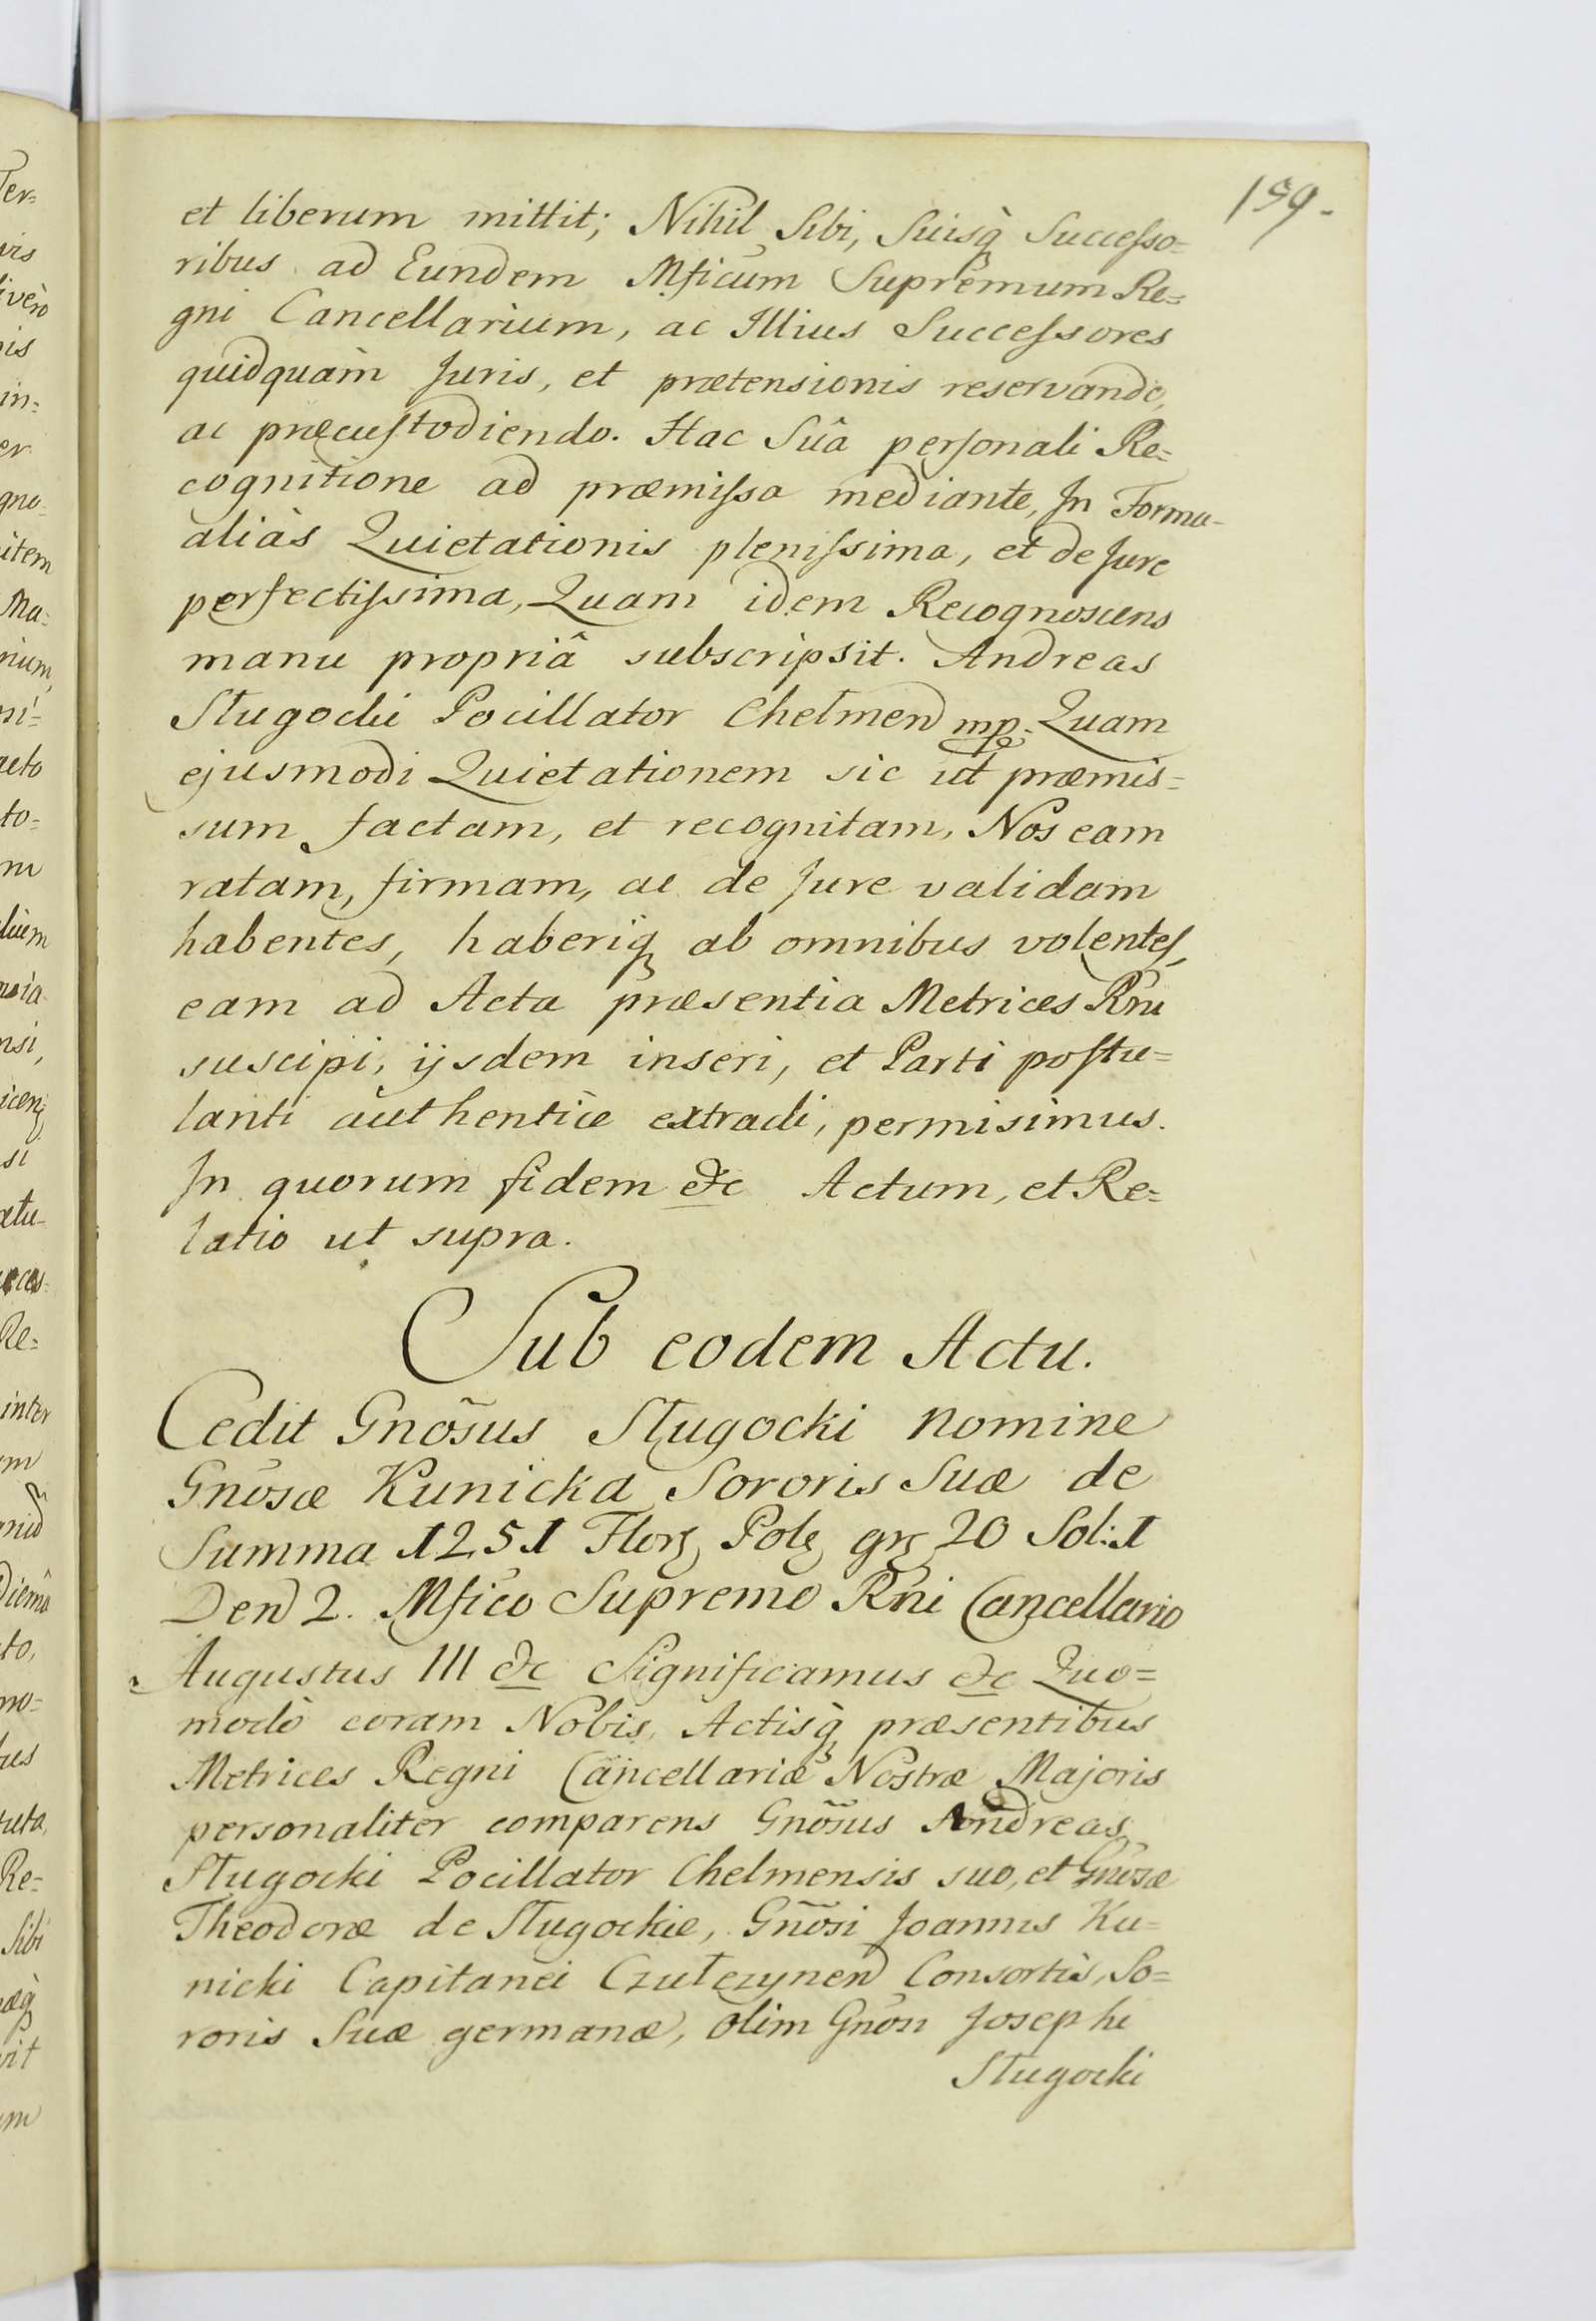 159.
et liberum mittit; Nihil Sibi, Suisq̀ Successo=
ribus ad Eundem Mficum Supremum Re=
gni Cancellarium, ac Illius Successores
quidquàm Juris, et prætensionis reservando,
ac præcustodiendo. Hac Suâ personali Re=
cognitione ad præmissa mediante, In Forma
aliàs Quietationis plenissima, et de Jure
perfectissima, Quam idem Recognoscens
manu propriâ subscripsit. Andreas
Sługocki Pocillator Chelmen mp. Quam
ejusmodi Quietationem sic ut præmis=
sum factam, et recognitam, Nos eam
ratam, firmam, ac de Jure validam
habentes, haberiq ab omnibus volentes,
eam ad Acta præsentia Metrices Rni
suscipi, ijsdem inseri, et Parti postu=
lanti authenticè extradi, permisimus.
In quorum fidem &c Actum, et Re=
latio ut supra.
Sub eodem Actu.
Cedit Gnõsus Sługocki nomine
Gnosæ Kunicka Sororis Suæ de
Summa 1251 Flor Pol gr 20 Sol: 1
Den 2. Mfico Supremo Rni Cancellario
Augustus III &c Significamus &c Quo=
modò coram Nobis, Actisq̀ præsentibus
Metrices Regni Cancellariæ Nostræ Majoris
personaliter comparens Gnõsus Andreas
Sługocki Pocillator Chelmensis suo, et Gnosæ
Theodoræ de Sługockie, Gnõsi Joannis Ku=
nicki Capitanei Czułczynen Consortis, So=
roris Suæ germanæ, olim Gnosi Josephi
Sługocki